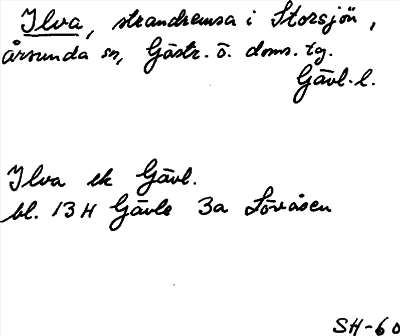 Ilva, strandremsa i Storsjön,
årsunda sn, Gästr. ö. doms. tg.
Gävl. l.
Ilva ek Gävl.
bl. 13 H Gävle 3a Lövåsen
SH-60